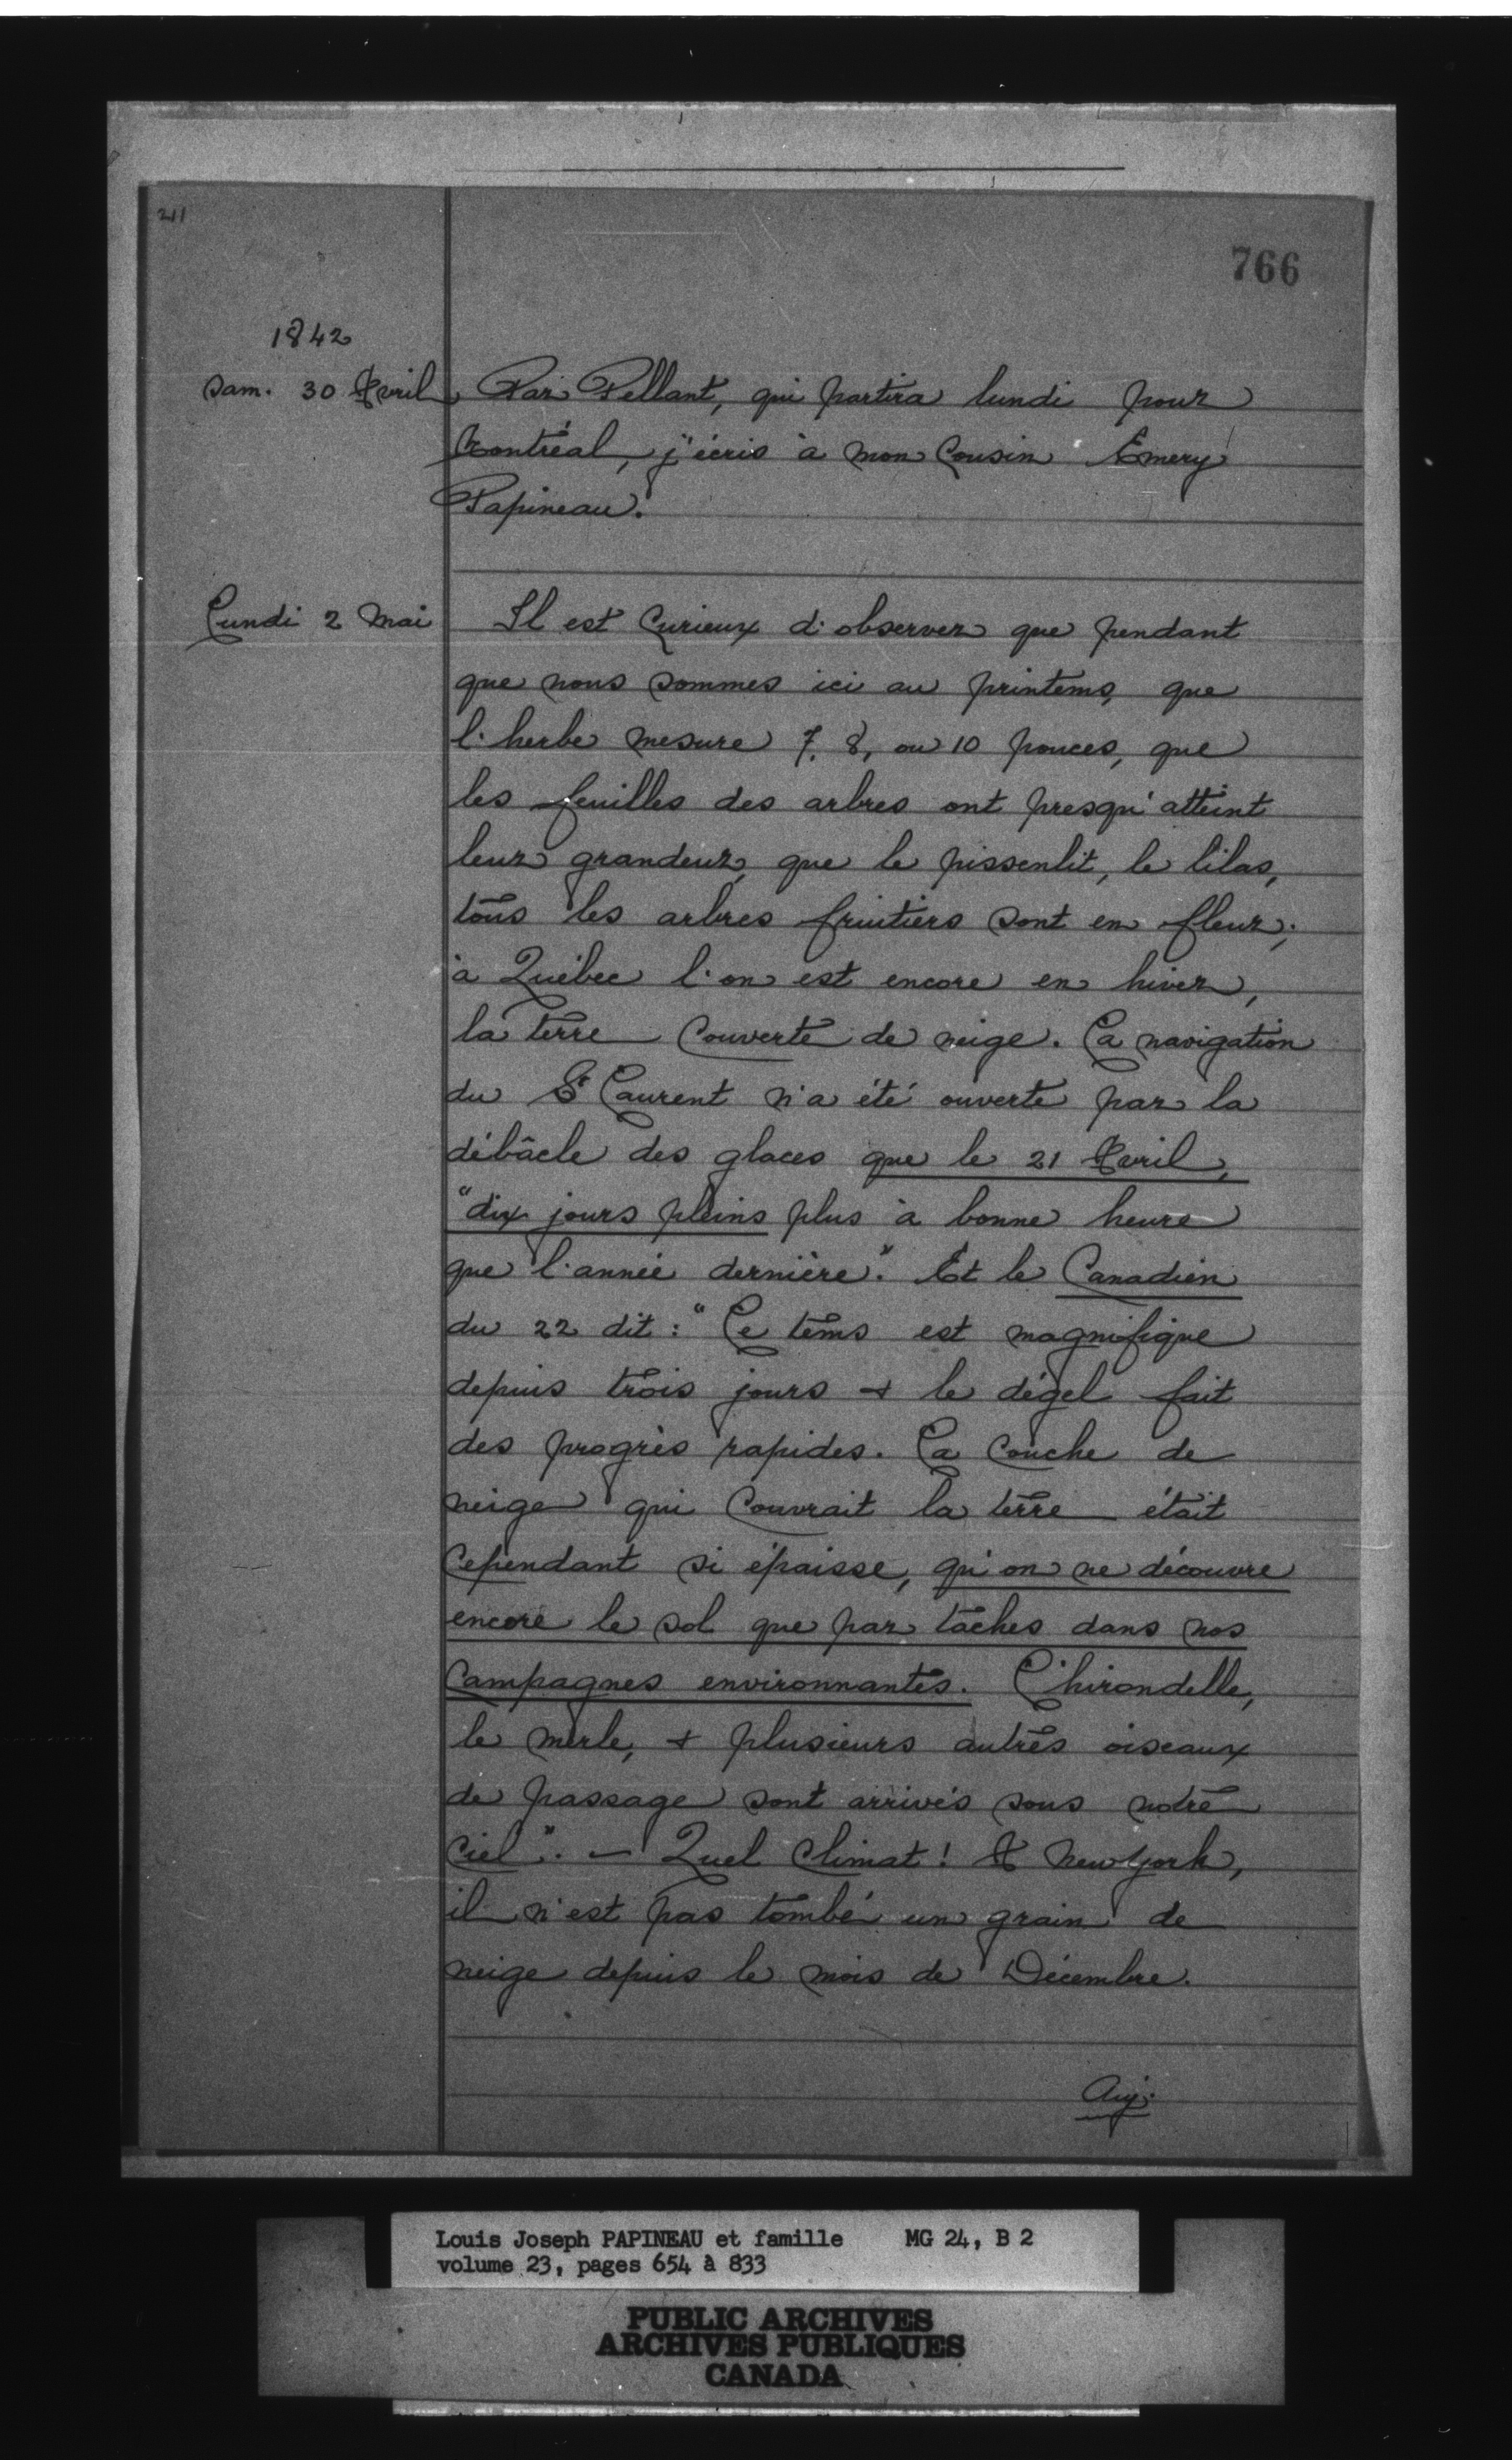 211
766
1842
Sam. 30 Avril
Par Pellant, qui partira lundi pour
Montréal, j'écris à mon Cousin Emery
Papineau.
Lundi 2 Mai
Il est Curieux d'observer que pendant
que nous sommes ici au printems, que
l'herbe mesure 7, 8, ou 10 pouces, que
les feuilles des arbres ont presqu'atteint
leur grandeur, que le pissenlit, le lilas,
tous les arbres fruitiers sont en fleur;
à Québec l'on est encore en hiver,
la terre Couverte de neige. La navigation
du St Laurent n'a été ouverte par la
débâcle des glaces que le 21 Avril,
"dix jours pleins plus à bonne heure
que l'année dernière." Et le Canadien
du 22 dit: "Le tems est magnifique
depuis trois jours & le dégel fait
des progrès rapides. La Couche de
neige qui Couvrait la terre était
Cependant si épaisse, qu'on ne découvre
encore le sol que par taches dans nos
Campagnes environnantes. L'hirondelle,
le merle, & plusieurs autres oiseaux
de passage sont arrivés sous notre
Ciel". — Quel Climat! A New York,
il n'est pas tombé un grain de
neige depuis le mois de Décembre.
Auj.
Louis Joseph PAPINEAU et famille MG 24, B 2
volume 23, pages 654 à 833
PUBLIC ARCHIVES
ARCHIVES PUBLIQUES
CANADA